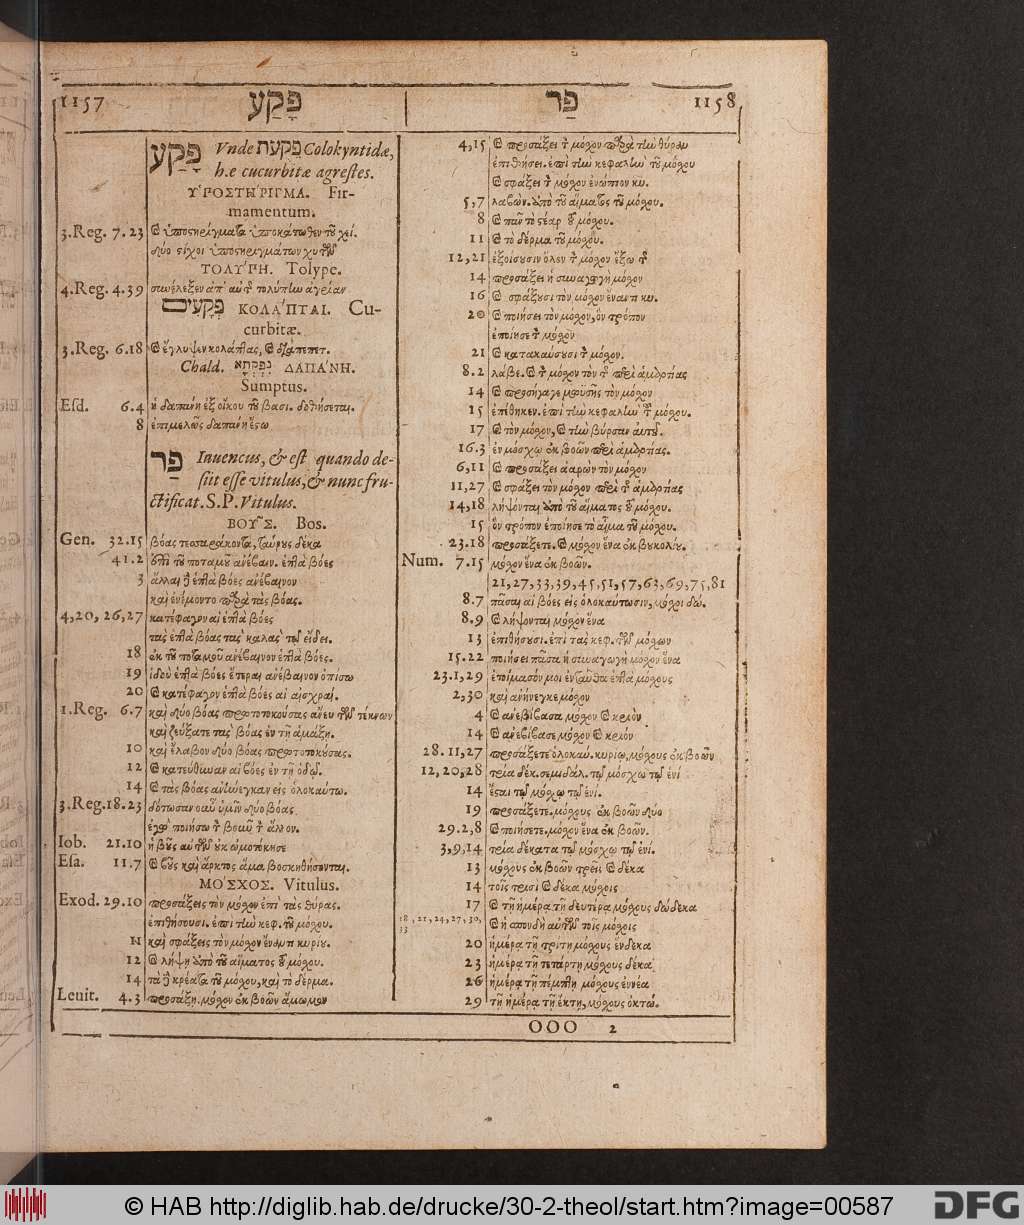 1157 פָּקַע פַּר 1158
פָּקַע Vnde פַּקֻעֹת Colokyntidæ,
h.e cucurbitæ agrestes.
ὙΠΟΣΤΗΡΙΓΜΑ. Fir-
mamentum.
3.Reg. 7.23 ὑποστηρίγματα ὑποκάτωθεν τοῦ χεί.
δύο στίχοι ὑποστηριγμάτων χυτῶν
ΤΟΛΥΠΗ. Tolype.
4.Reg. 4.39 συνέλεξεν ἀπ' αὐτοῦ τολύπην ἀγρίαν
פְּקָעִים ΚΟΛΑΠΤΑΙ. Cu-
curbitæ.
3.Reg. 6.18
Chald. נִפְקְתָא ΔΑΠΑΝΗ.
Sumptus.
Esd. 6.4 ἡ δαπάνη ἐξ οἴκου τοῦ βασι. δοθήσεται.
8 ἐπιμελῶς δαπάνη ἔστω
פַּר Iuuencus, & est quando de-
siit esse vitulus, & nunc fru-
ctificat. S.P. Vitulus.
ΒΟΥΣ. Bos.
Gen. 32.15 βόας τεσσαράκοντα, ταύρους δέκα
41.2 ἐκ τοῦ ποταμοῦ ἀνέβαιν. ἑπτὰ βόες
3 ἄλλαι δὲ ἑπτὰ βόες ἀνέβαινον
καὶ ἐνέμοντο παρὰ τὰς βόας.
4,20,26,27 κατέφαγον αἱ ἑπτὰ βόες
τὰς ἑπτὰ βόας τὰς καλὰς τῷ εἴδει.
18 ἐκ τοῦ ποταμοῦ ἀνέβαινον ἑπτὰ βόες.
19 ἰδοὺ ἑπτὰ βόες ἕτεραι ἀνέβαινον ὀπίσω
20 καὶ κατέφαγον ἑπτὰ βόες αἱ αἰσχραὶ.
1.Reg. 6.7 καὶ δύο βόας πρωτοτοκούσας ἄνευ τῶν τέκνων
καὶ ζεύξατε τὰς βόας ἐν τῇ ἁμάξῃ.
10 καὶ ἔλαβον δύο βόας πρωτοτοκούσας.
12 καὶ κατεύθυναν αἱ βόες ἐν τῇ ὁδῷ.
14 καὶ τὰς βόας ἀνήνεγκαν εἰς ὁλοκαύτω.
3.Reg. 18.23 δότωσαν οὖν ἡμῖν δύο βόας
ἐγὼ ποιήσω τὸν βοῦν τὸν ἄλλον.
Iob. 21.10 ἡ βοῦς αὐτῶν οὐκ ὠμοτόκησε
Esa. 11.7 καὶ βοῦς καὶ ἄρκτος ἅμα βοσκηθήσονται.
ΜΟΣΧΟΣ. Vitulus.
Exod. 29.10 προσάξεις τὸν μόσχον ἐπὶ τὰς θύρας.
ἐπιθήσουσι. ἐπὶ τὴν κεφ. τοῦ μόσχου.
11 καὶ σφάξεις τὸν μόσχον ἔναντι κυρίου.
12 καὶ λήψῃ ἀπὸ τοῦ αἵματος τοῦ μόσχου.
14 τὰ δὲ κρέατα τοῦ μόσχου, καὶ τὸ δέρμα.
Leuit. 4.3 προσάξῃ. μόσχον ἐκ βοῶν ἄμωμον
4,15 καὶ προσάξει τὸν μόσχον παρὰ τὴν θύραν
ἐπιθήσει. ἐπὶ τὴν κεφαλὴν τοῦ μόσχου
καὶ σφάξει τὸν μόσχον ἐνώπιον κυ.
5,7 λαβὼν. ἀπὸ τοῦ αἵματος τοῦ μόσχου.
8 καὶ πᾶν τὸ στέαρ τοῦ μόσχου.
11 καὶ τὸ δέρμα τοῦ μόσχου.
12,21 ἐξοίσουσιν ὅλον τὸν μόσχον ἔξω τῆς
14 προσάξει ἡ συναγωγὴ μόσχον
16 καὶ σφάξουσι τὸν μόσχον ἔναντι κυ.
20 καὶ ποιήσει τὸν μόσχον, ὃν τρόπον
ἐποίησε τὸν μόσχον
21 καὶ κατακαύσουσι τὸν μόσχον.
8.2 λαβὲ. καὶ τὸν μόσχον τὸν περὶ ἁμαρτίας
14 καὶ προσήγαγε μωϋσῆς τὸν μόσχον
15 ἐπέθηκεν. ἐπὶ τὴν κεφαλὴν τοῦ μόσχου.
17 καὶ τὸν μόσχον, καὶ τὴν βύρσαν αὐτοῦ.
16.3 ἐν μόσχῳ ἐκ βοῶν περὶ ἁμαρτίας.
6,11 καὶ προσάξει ἀαρὼν τὸν μόσχον
11,27 καὶ σφάξει τὸν μόσχον περὶ τῆς ἁμαρτίας
14,18 λήψεται ἀπὸ τοῦ αἵματος τοῦ μόσχου.
15 ὃν τρόπον ἐποίησε τὸ αἷμα τοῦ μόσχου.
23.18 προσάξετε. καὶ μόσχον ἕνα ἐκ βουκολίου.
Num. 7.15 μόσχον ἕνα ἐκ βοῶν.
21,27,33,39,45,51,57,63,69,75,81
8.7 πᾶσαι αἱ βόες εἰς ὁλοκαύτωσιν, μόσχοι δώ.
8.9 καὶ λήψονται μόσχον ἕνα
13 ἐπιθήσουσι. ἐπὶ τὰς κεφ. τῶν μόσχων
15.22 ποιήσει πᾶσα ἡ συναγωγὴ μόσχον ἕνα
23.1,29 ἑτοίμασόν μοι ἐνταῦθα ἑπτὰ μόσχους
2,30 καὶ ἀνήνεγκε μόσχον
4 καὶ ἀνεβίβασα μόσχον καὶ κριὸν
14 καὶ ἀνεβίβασε μόσχον καὶ κριόν
28.11,27 προσάξετε ὁλοκαύ. κυρίῳ, μόσχους ἐκ βοῶν
12,20,28 τρία δέκ. σεμιδάλ. τῷ μόσχῳ τῷ ἑνί
14 ἔσται τῷ μόσχῳ τῷ ἑνί.
19 προσάξετε. μόσχους ἐκ βοῶν δύο
29.2,8 καὶ ποιήσετε. μόσχον ἕνα ἐκ βοῶν.
3,9,14 τρία δέκατα τῷ μόσχῳ τῷ ἑνί.
13 μόσχους ἐκ βοῶν τρεῖς καὶ δέκα
14 τοῖς τρισὶ καὶ δέκα μόσχοις
17 καὶ τῇ ἡμέρᾳ τῇ δευτέρᾳ μόσχους δώδεκα
18, 21, 24, 27, 30, 33 καὶ ἡ σπονδὴ αὐτῶν τοῖς μόσχοις
20 ἡμέρᾳ τῇ τρίτῃ μόσχους ἕνδεκα
23 ἡμέρᾳ τῇ τετάρτῃ μόσχους δέκα
26 ἡμέρᾳ τῇ πέμπτῃ μόσχους ἐννέα
29 τῇ ἡμέρᾳ τῇ ἕκτῃ, μόσχους ὀκτώ.
OOO 2
© HAB http://diglib.hab.de/drucke/30-2-theol/start.htm?image=00587
DFG